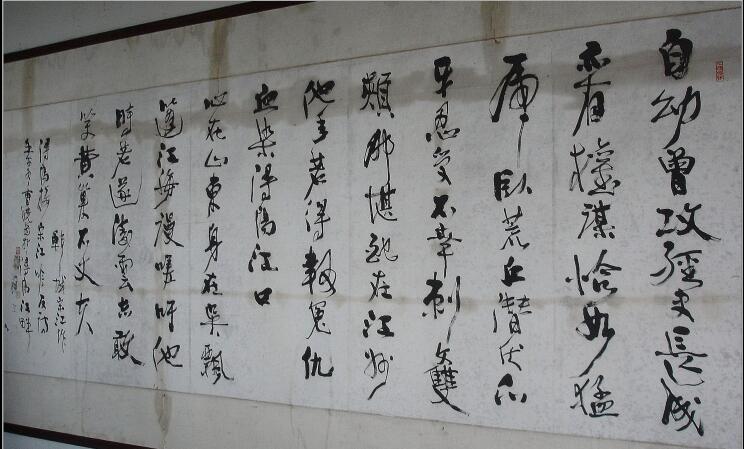 自幼曾攻經史長成
亦有權謀恰如猛
虎臥荒丘潛伏爪
牙忍受不幸刺文雙
頰那堪配在江州
他年若得報冤仇
血染潯陽江口
心在山東身在吳飄
蓬江海漫嗟吁他
時若遂凌雲志敢
笑黃巢不丈夫
鄆城宋江作
潯陽樓宋江吟反詩